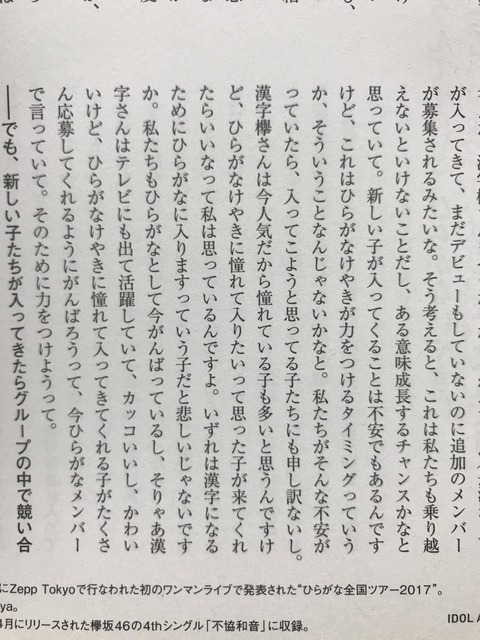 が入ってきて、まだデビューもしていないのに追加のメンバー
が募集されるみたいな。そう考えると、これは私たちも乗り越
えないといけないことだし、ある意味成長するチャンスかなと
思っていて。新しい子が入ってくることは不安でもあるんです
けど、これはひらがなけやきが力をつけるタイミングっていう
か、そういうことなんじゃないかなと。私たちがそんな不安が
っていたら、入ってこようと思ってる子たちにも申し訳ないし。
漢字欅さんは今人気だから憧れている子も多いと思うんですけ
ど、ひらがなけやきに憧れて入りたいって思った子が来てくれ
たらいいなって私は思っているんですよ。いずれは漢字になる
ためにひらがなに入りますっていう子だと悲しいじゃないです
か。私たちもひらがなとして今がんばっているし、そりゃあ漢
字さんはテレビにも出て活躍していて、カッコいいし、かわい
いけど、ひらがなけやきに憧れて入ってきてくれる子がたくさ
ん応募してくれるようにがんばろうって、今ひらがなメンバー
で言っていて。そのために力をつけようって。
――でも、新しい子たちが入ってきたらグループの中で競い合
にZepp Tokyoで行なわれた初のワンマンライブで発表された“ひらがな全国ツアー2017”。
ya.
月にリリースされた欅坂46の4thシングル「不協和音」に収録。
IDOL A